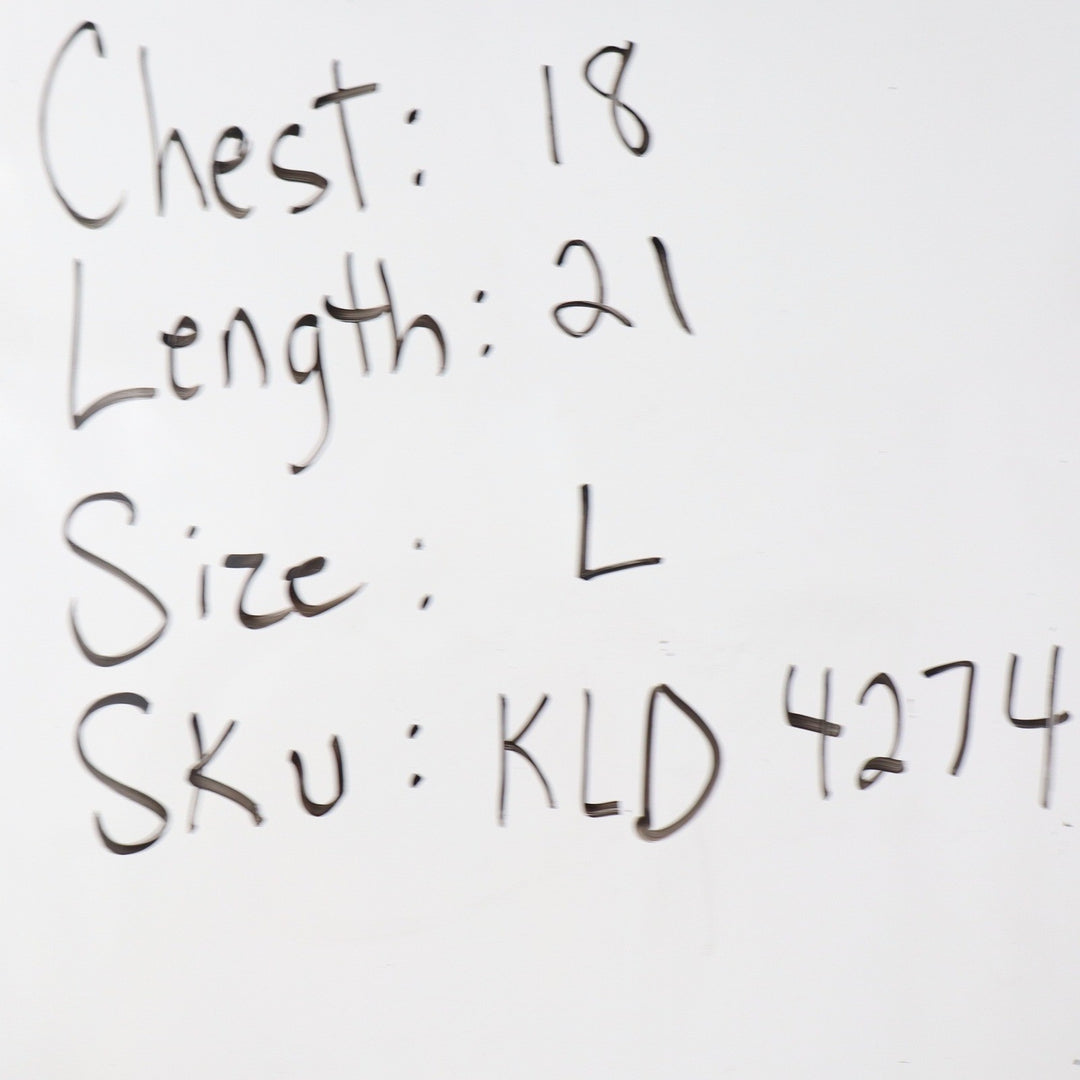 Chest: 18
Length: 21
Size: L
SKU: KLD 4274